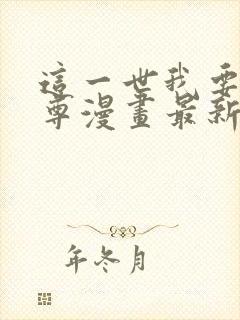 這一世我要
尊漫畫最新
年冬月